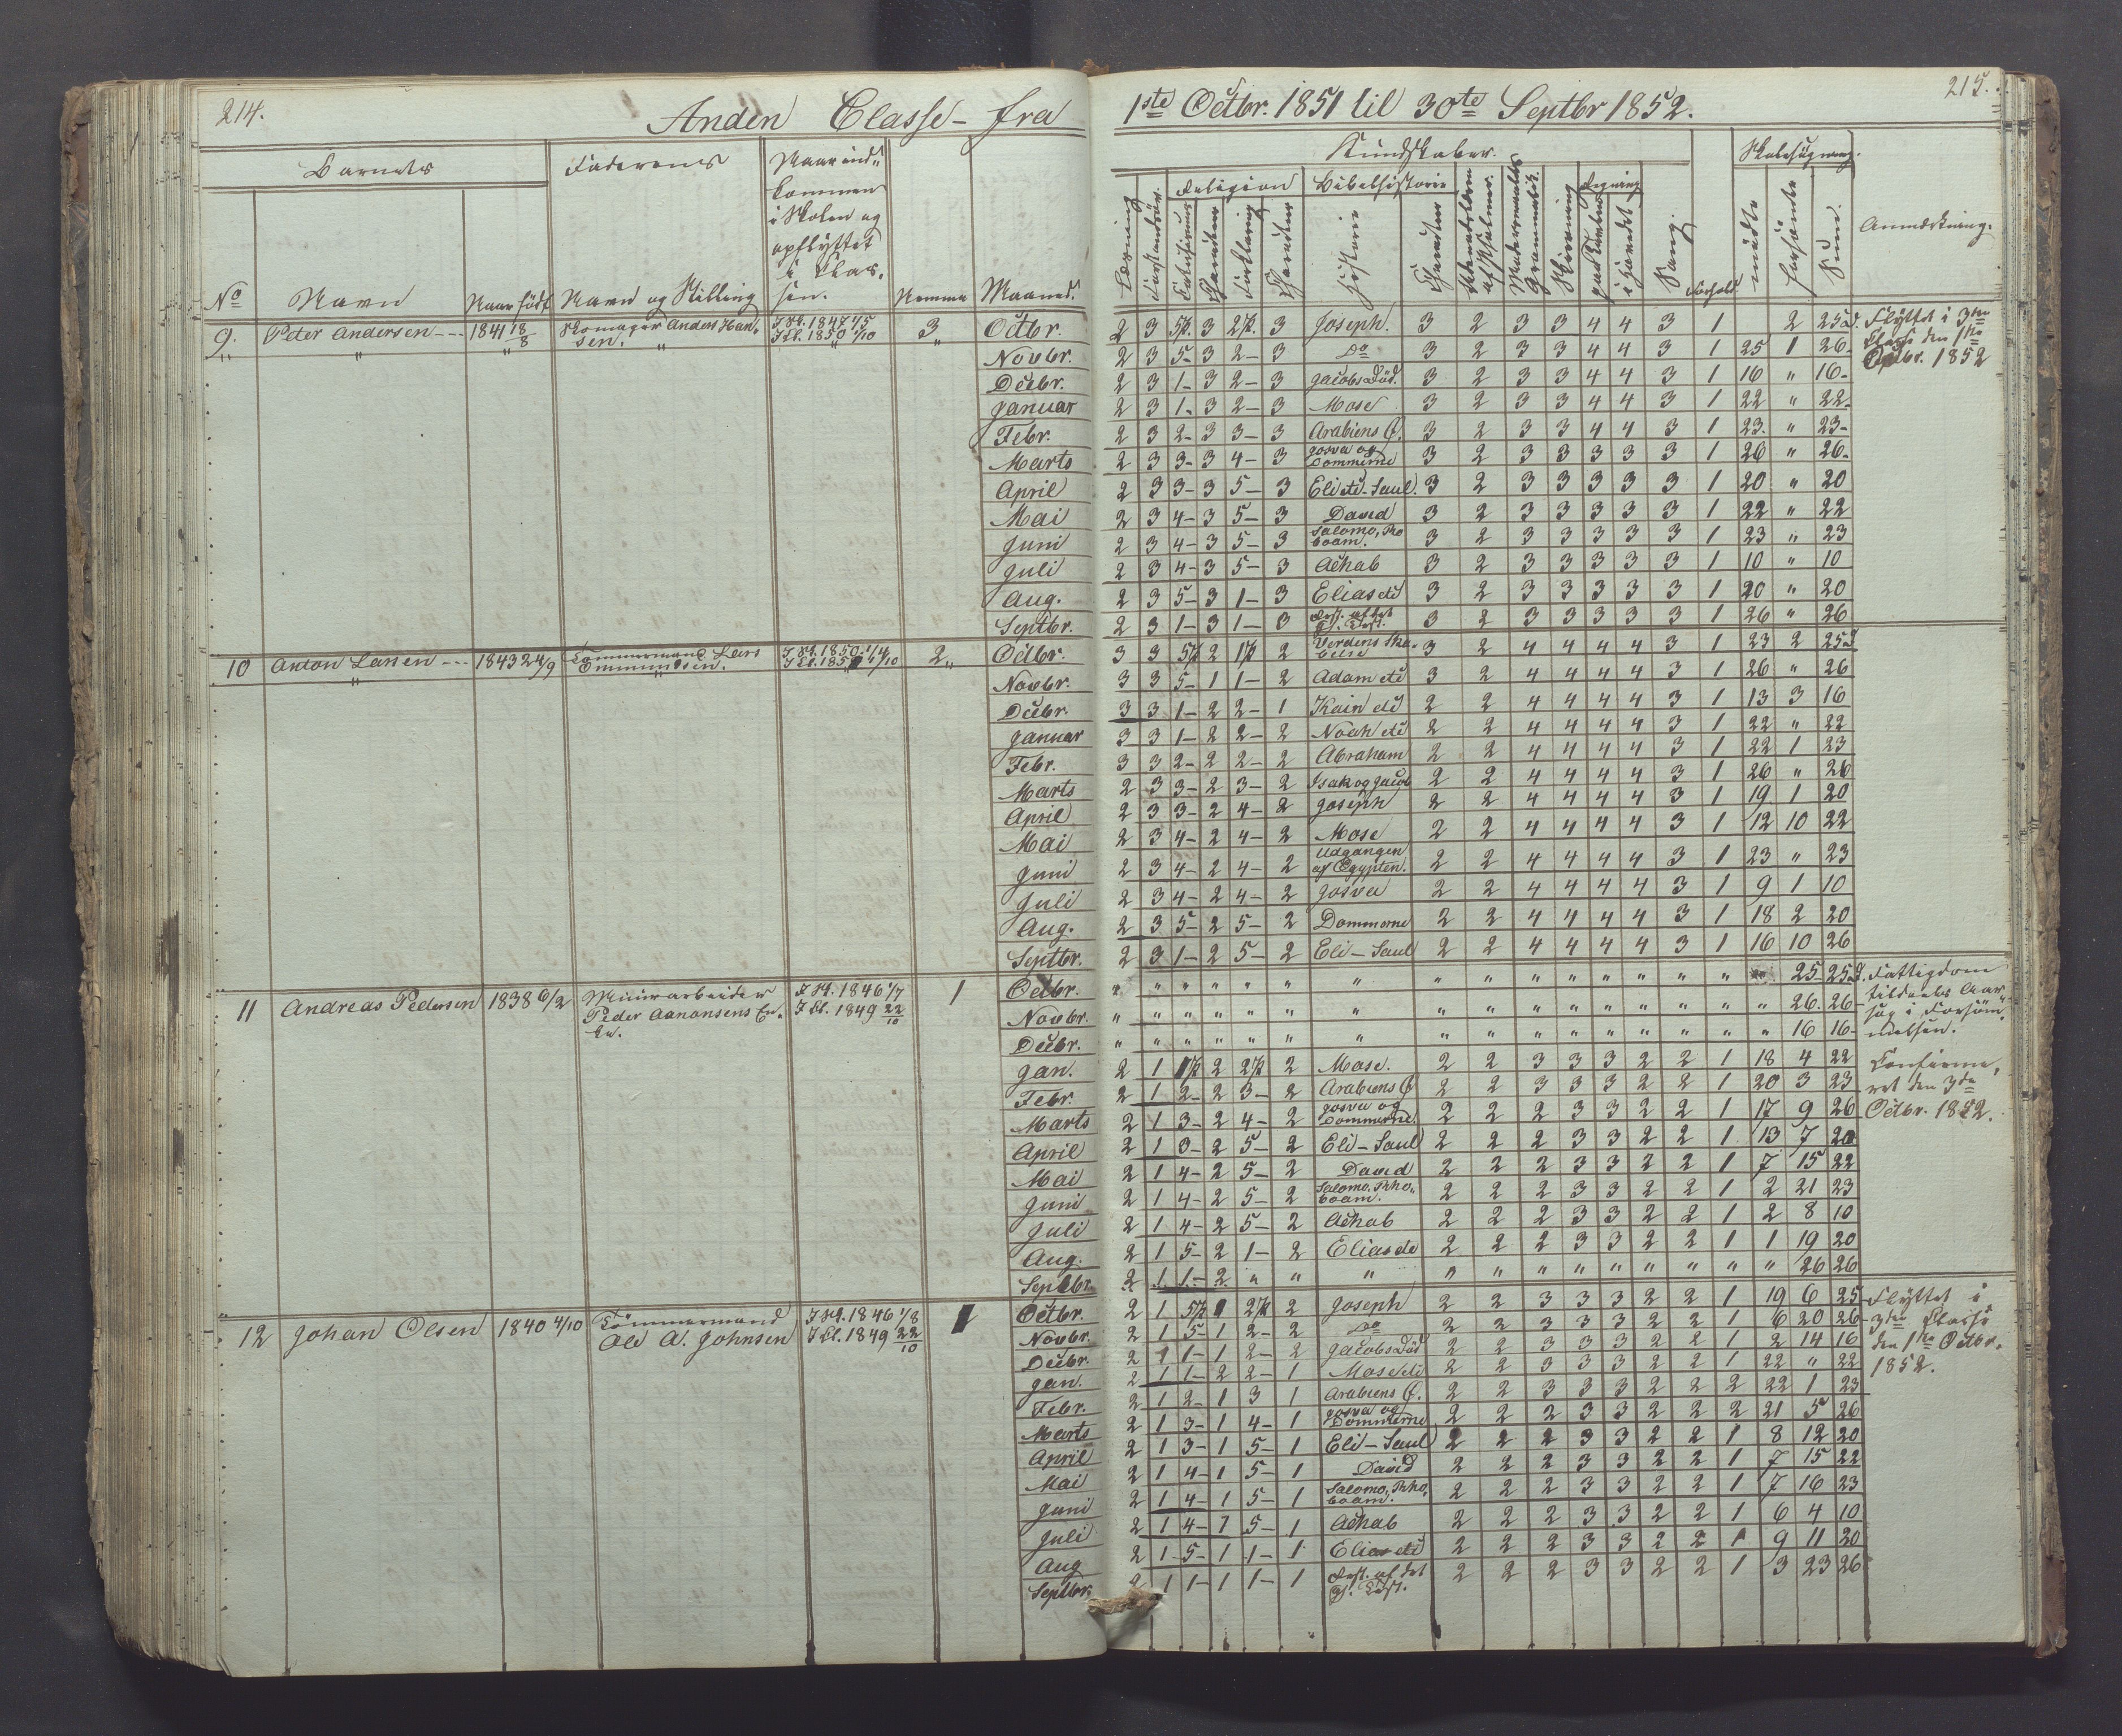 214.
Anden Classe - fra
Barnets
Faderens
Naar ind-
kommen
i Skolen og
opflyttet
i Clas-
sen.
No Navn Naar født Navn og Stilling Nemme Maaned.
9. Peter Andersen --- 1841 18/8 Skomager Anders Han- I Sk. 1847 1/5 3 Octbr.
sen. I Cl. 1850 1/10
Novbr.
Decbr.
Januar
Febr.
Marts
April
Mai
Juni
Juli
Aug.
Septbr.
10 Anton Larsen --- 1843 24/9 Tømmermand Lars I Sk. 1850 1/4 2 Octbr.
Novbr.
Decbr.
Januar
Febr.
Marts
April
Mai
Juni
Juli
Aug.
Septbr.
11 Andreas Pedersen 1838 6/2 Muurarbeider I Sk. 1846 1/7 1 Octbr.
Peder Aanonsens En- I Cl. 1849 22/10
ke. Novbr.
Decbr.
Jan.
Febr.
Marts
April
Mai
Juni
Juli
Aug.
Septbr.
12 Johan Olsen 1840 4/10 Tømmermand I Sk. 1846 1/8 1 Octbr.
Ole A. Johnsen I Cl. 1849 22/10 Novbr.
Decbr.
Jan.
Febr.
Marts
April
Mai
Juni
Juli
Aug
Septbr.
215.
1ste Octbr. 1851 til 30te Septbr 1852.
Kundskaber. Skolesøgning.
Religion Bibelhistorie Regning
Læsning Forstandsøv. Catechismus Færdighed Forklaring Historie Sang. Forhold mødte forsømte Sum. Anmærkning.
2 3 5 3 2 3 Joseph. 3 2 3 3 4 4 3 1 2 25 D. Flyttet i 3die
2 3 5- 3 2- 3 Do 3 2 3 3 4 4 3 1 25 1 26- Classe den 1ste
2 3 1- 3 2- 3 Jacobs Død. 3 2 3 3 4 4 3 1 16 " 16- Octbr. 1852
2 3 1- 3 2- 3 Mose 3 2 3 3 4 4 3 1 22 " 22-
2 3 2- 3 3- 3 Arabiens Ø. 3 2 3 3 4 4 3 1 23. " 23-
2 3 3- 3 4- 3 Josva og Dommerne 3 2 3 3 3 3 3 1 26 " 26-
2 3 3- 3 5- 3 Eli etc - Saul. 3 2 3 3 3 3 3 1 20 " 20
2 3 4- 3 5- 3 David 3 2 3 3 3 3 3 1 22 " 22
2 3 4- 3 5- 3 Salomo, Rhoboam. 3 2 3 3 3 3 3 1 23 " 23
2 3 4- 3 5- 3 Achab 3 2 3 3 3 3 3 1 10 " 10
2 3 5- 3 1- 3 Elias etc 3 2 3 3 3 3 3 1 20 " 20
2 3 1- 3 1- 3 Rest. af det Gl. Test. 3 2 3 3 3 3 3 1 26 " 26
3 3 5 2 1 2 Verdens Skabelse 3 2 4 4 4 4 3 1 23 2 25 D
3 3 5- 1 1- 2 Adam etc 3 2 4 4 4 4 3 1 26 " 26
3 3 1- 2 2- 1 Kain etc 2 2 4 4 4 4 3 1 13 3 16
3 3 1- 2 2- 2 Noah etc 2 2 4 4 4 4 3 1 22 " 22
3 3 2- 2 2- 2 Abraham 2 2 4 4 4 4 3 1 22 1 23
2 3 3- 2 3- 2 Isak og Jacob 2 2 4 4 4 4 3 1 26 " 26
2 3 3- 2 4- 2 Joseph 2 2 4 4 4 4 3 1 19 1 20
2 3 4- 2 4- 2 Mose 2 2 4 4 4 4 3 1 12 10 22
2 3 4- 2 4- 2 Udgangen af Egypten. 2 2 4 4 4 4 3 1 23 " 23
2 3 4- 2 4- 2 Josva 2 2 4 4 4 4 3 1 9 1 10
2 3 5- 2 5- 2 Dommerne 2 2 4 4 4 4 3 1 18 2 20
2 3 1- 2 5- 2 Eli - Saul 2 2 4 4 4 4 3 1 16 10 26
" " " " " " " " " " " " " " " 25 25 D. Fattigdom
" " " " " " " " " " " " " " " " 26. 26- tildeels Aar-
sag i Forsøm-
" " " " " " " " " " " " " " " " 16 16- melsen.
2 1 1 2 2 2 Mose. 2 2 3 3 3 2 2 1 18 4 22 Confirme-
2 1 2- 2 3- 2 Arabiens Ø 2 2 3 3 3 2 2 1 20 3 23 ret den 3die
2 1 3- 2 4- 2 Josva og Dommerne. 2 2 2 3 3 2 2 1 17 9 26 Octbr. 1852.
2 1 3- 2 5- 2 Eli - Saul 2 2 2 3 3 2 2 1 13 7 20
2 1 4- 2 5- 2 David 2 2 2 3 3 2 2 1 7 15 22
2 1 4- 2 5- 2 Salomo, Rhoboam. 2 2 2 3 3 2 2 1 2 21 23
2 1 4- 2 5- 2 Achab 2 2 2 3 3 2 2 1 2 8 10
2 1 5- 2 1- 2 Elias etc 2 2 2 3 3 2 2 1 1 19 20
2 1 1- 2 " " " " " " " " " " " " 26 26
2 1 5 1 2 2 Joseph 2 2 3 3 3 2 2 1 19 6 25- Flyttet i
2 1 5- 1 2- 2 Do 2 2 3 3 3 2 2 1 6 20 26- 3die Classe
2 1 1- 1 2- 2 Jacobs Død 2 2 3 3 3 2 2 1 2 14 16 den 1ste Octbr.
2 1 1- 2 2- 1 Mose etc 2 2 3 3 3 2 2 1 22 " 22 1852.
2 1 2- 1 3 1 Arabiens Ø. 2 2 3 3 3 2 2 2 22 1 23
2 1 3- 1 4- 1 Josva og Dommerne 2 2 2 3 3 2 2 2 21 5 26
2 1 3- 1 5- 1 Eli - Saul 2 2 2 3 3 2 2 1 8 12 20
2 1 4- 1 5- 1 David 2 2 2 3 3 2 2 1 7 15 22
2 1 4- 1 5- 1 Salomo, Rhoboam. 2 2 2 3 3 2 2 1 7 16 23
2 1 4- 1 5- 1 Achab 2 2 2 3 3 2 2 1 6 4 10
2 1 5- 1 1- 1 Elias etc 2 2 2 3 3 2 2 1 9 11 20
2 1 1- 1 1- 1 Rest. af det Gl. Test. 2 2 2 3 3 2 2 1 3 23 26